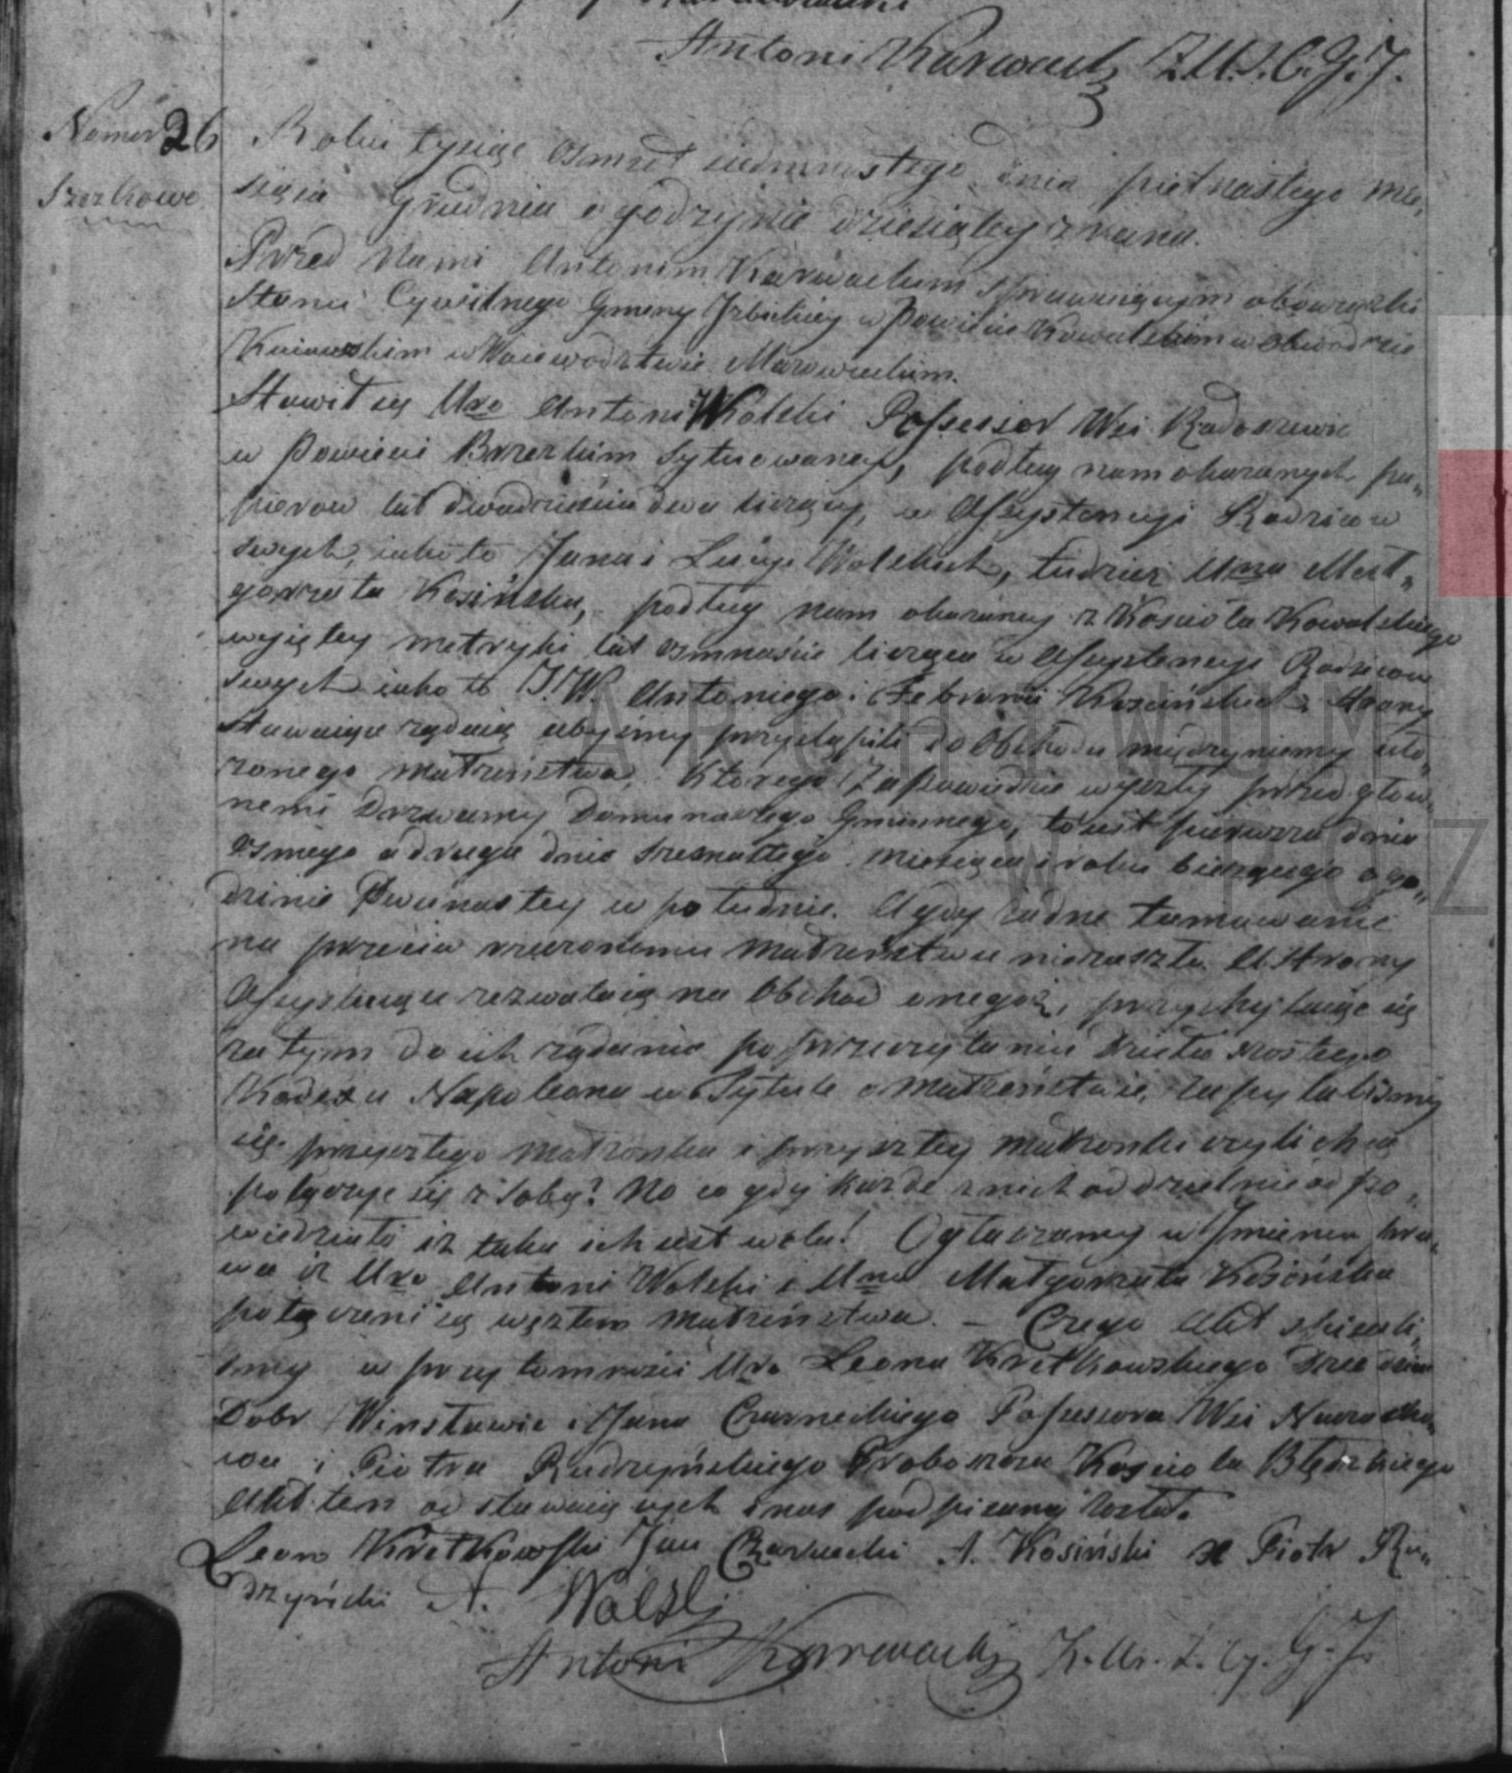 Antoni Karwack Z.U.S.C.G.J.
Numer 26
Szczkowo
Roku tysiąc osmset siedmnastego dnia pietnastego mie„
siąca Grudnia o godzynie dziesiątey z rana.
Przed Nami Antonim Karwackim sprawuiącym obowiązki
Stanu Cywilnego Gminy Izbickiey w Powiecie Kowalskim w obwodzie
Kuiawskim w Woiewodztwie Mazowieckim.
Stawił się Uro Antoni Wolski Possessor Wsi Radoszewic
w Powieci Brzezkim sytuowaney, podług nam okazanych pa„
pierow lat dwadzieścia dwa liczący, w Assystencyi Rodzicow
swych, iako to Jana i Lucyi Wolskich, tudzież Una Mał„
gorzata Kosińska, podług nam okazaney z Kościoła Kowalskiego
wyiętey metryki lat osmnaście licząca w Assystencyi Rodzicow
swych iako to J.W. Antoniego i Febronii Kosińskich. Strony
stawaiące żądaią abyśmy przystąpili do Obchodu między niemy uło„
żonego małżeństwa, ktorego Zapowiedzie wyszły przed głow„
nemi Drzwiamy Domu naszego Gminnego, to iest pierwsza dnia
osmego a druga dnia miesiąca i roku bieżącego o go„
dzinie Dwunastey w południe. A gdy żadne tamowanie
na przeciw rzeczonemu Małżeństwu niezaszło. A Strony
Assystuiące zezwalaią na Obchod onegoż, przychylaiąc się
zatym do ich żądania po przeczytaniu Działu szostego
Kodexu Napoleona w Tytule o Małżeństwie, zapytaliśmy
się przyszłego małżonka i przyszłey małżonki czyli chcą
połączyć się z sobą? Na co gdy każde z nich oddzielnie odpo„
wiedziało iż taka ich iest wola! Ogłaszamy w Imieniu pra„
wa iż Uro Antoni Wolski i Una Małgorzata Kosińska
połączeni są węzłem małżeństwa. – Czego Akt spisali„
śmy w przytomności Uro Leona Kretkowskiego
Dobr Winsławic Jana Czarneckiego Possessora Wsi
i Piotra Rudzyńskiego Proboszcza Kościoła Błędzkiego
Akt ten od stawaiących i nas podpisany został.
Leon Kretkowski Jan Czarnecki A. Kosiński x Piotr Ru„
dzyński A. Wolski
Antoni Karwacki Z.U.S.Cy.G.J.
ARCHIWUM
W POZ